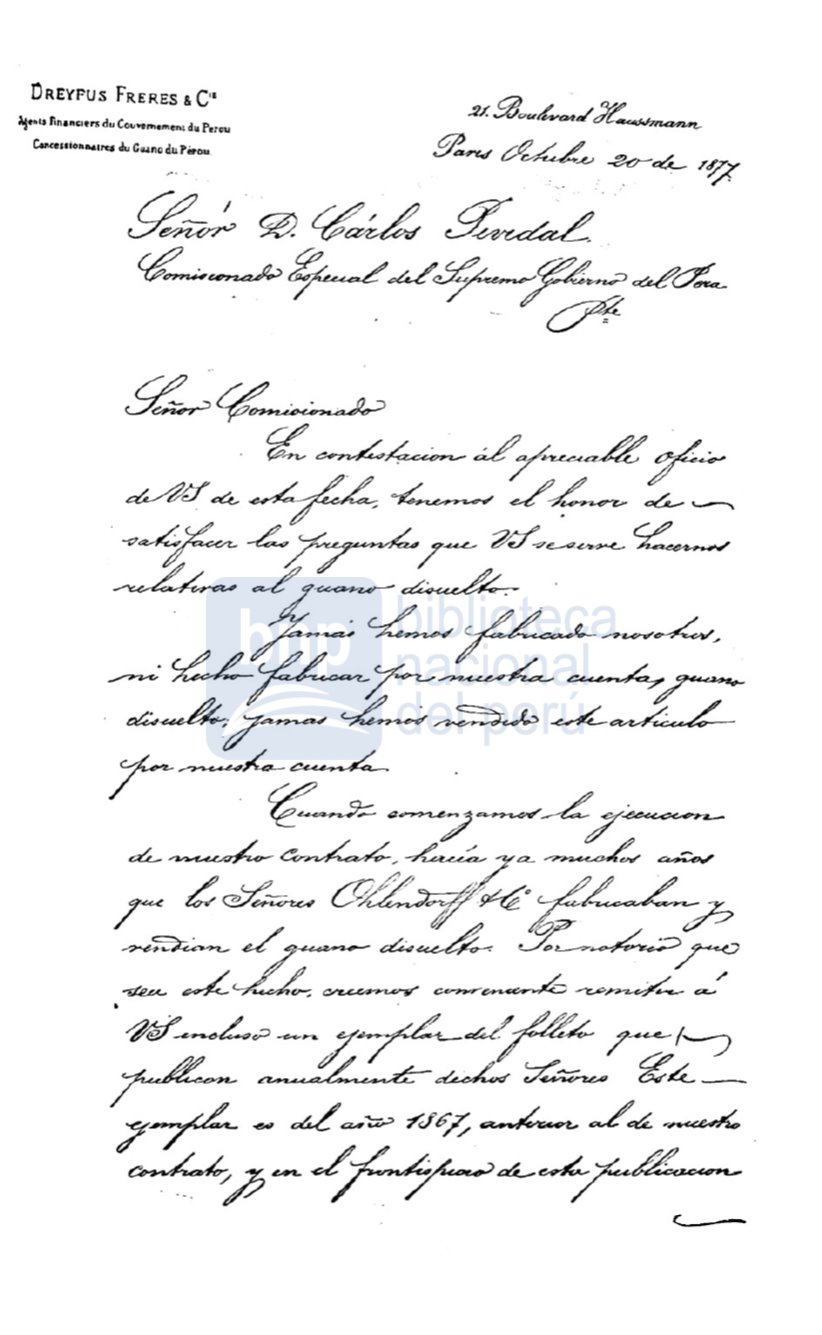 DREYFUS FRERES & Cie
Agents Financiers du Gouvernement du Perou
Concessionnaires du Guano du Pérou
21. Boulevard Haussmann
Paris Octubre 20 de 1877
Señor D. Cárlos Pividal.
Comisionado Especial del Supremo Gobierno del Peru
Pte
Señor Comisionado
En contestacion al apreciable oficio
de VS de esta fecha, tenemos el honor de
satisfacer las preguntas que VS se sirve hacernos
relativas al guano disuelto.
Jamás hemos fabricado nosotros,
ni hecho fabricar por nuestra cuenta, guano
disuelto; jamas hemos vendido este articulo
por nuestra cuenta.
Cuando comenzamos la ejecucion
de nuestro contrato, hacía ya muchos años
que los Señores Ohlendorff & Co fabricaban y
vendian el guano disuelto. Por notorio que
sea este hecho, creemos conveniente remitir á
VS incluso un ejemplar del folleto que
publican anualmente dichos Señores Este
ejemplar es del año 1867, anterior al de nuestro
contrato, y en el frontispicio de esta publicacion
bnp biblioteca
nacional
del perú